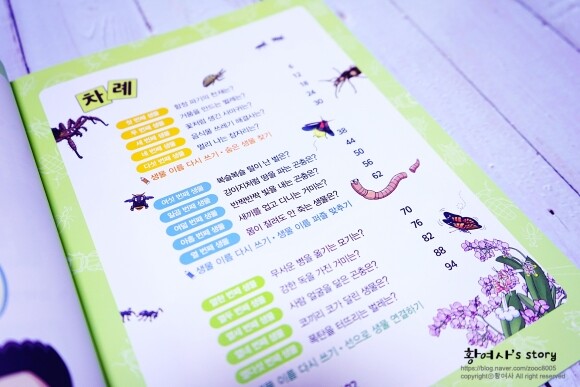 차례
첫 번째 생물 함정 파기의 천재는? 6
두 번째 생물 거품을 만드는 벌레는? 12
세 번째 생물 꽃처럼 생긴 사마귀는? 18
네 번째 생물 음식물 쓰레기 해결사는? 24
다섯 번째 생물 멀리 나는 잠자리는? 30
생물 이름 다시 쓰기 · 숨은 생물 찾기
여섯 번째 생물 복슬복슬 털이 난 벌은? 38
일곱 번째 생물 강아지처럼 땅을 파는 곤충은? 44
여덟 번째 생물 반짝반짝 빛을 내는 곤충은? 50
아홉 번째 생물 새끼를 업고 다니는 거미는? 56
열 번째 생물 몸이 잘려도 안 죽는 생물은? 62
생물 이름 다시 쓰기 · 생물 이름 퍼즐 맞추기
열한 번째 생물 무서운 병을 옮기는 모기는? 70
열두 번째 생물 강한 독을 가진 거미는? 76
열세 번째 생물 사람 얼굴을 닮은 곤충은? 82
열네 번째 생물 코끼리 코가 달린 생물은? 88
열다섯 번째 생물 폭탄을 터뜨리는 벌레는? 94
생물 이름 다시 쓰기 · 선으로 생물 연결하기
황여사's story
https://blog.naver.com/zooc8005
copyright ⓒ 황여사 All right reserved